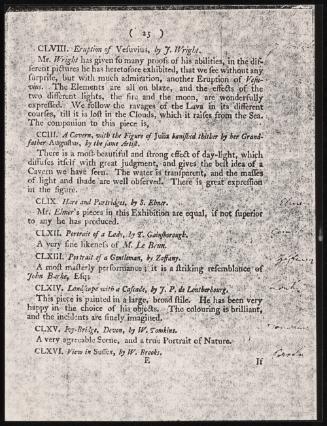 ( 25 )
CLVIII. Eruption of Vesuvius, by J. Wright.
Mr. Wright has given so many proofs of his abilities, in the dif-
ferent pictures he has heretofore exhibited, that we see without any
surprise, but with much admiration, another Eruption of Vesu-
vius. The Elements are all on blaze, and the effects of the
two different lights, the fire and the moon, are wonderfully
expressed. We follow the ravages of the Lava in its different
courses, till it is lost in the Clouds, which it raises from the Sea.
The companion to this piece is,
CCIII. A Cavern, with the Figure of Julia banished thither by her Grand-
father Augustus, by the same Artist.
There is a most beautiful and strong effect of day-light, which
diffuses itself with great judgment, and gives the best idea of a
Cavern we have seen. The water is transparent, and the masses
of light and shade are well observed. There is great expression
in the figure.
CLIX. Hare and Partridges, by S. Elmer.
Mr. Elmer's pieces in this Exhibition are equal, if not superior
to any he has produced.
CLXII. Portrait of a Lady, by T. Gainsborough.
A very fine likeness of M. Le Brun.
CLXIII. Portrait of a Gentleman, by Zaffany.
A most masterly performance; it is a striking resemblance of
John Burke, Esq;
CLXIV. Landscape with a Cascade, by J. P. de Loutherbourg.
This piece is painted in a large, broad stile. He has been very
happy in the choice of his objects. The colouring is brilliant,
and the incidents are finely imagined.
CLXV. Ivy-Bridge, Devon, by W. Tomkins.
A very agreeable Scene, and a true Portrait of Nature.
CLXVI. View in Sussex, by W. Brooks.
E
If